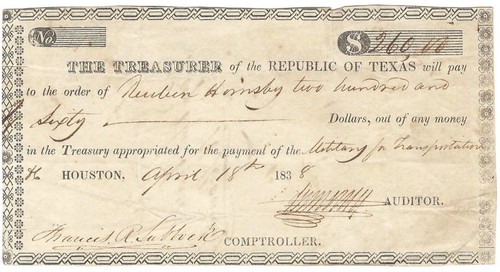 No. $ 260.00
THE TREASURER of the REPUBLIC OF TEXAS will pay
to the order of Reuben Hornsby two hundred and
Sixty Dollars, out of any money
in the Treasury appropriated for the payment of the Military for Transportation
HOUSTON, April 18th 1838
AUDITOR.
Francis R. Lubbock COMPTROLLER.